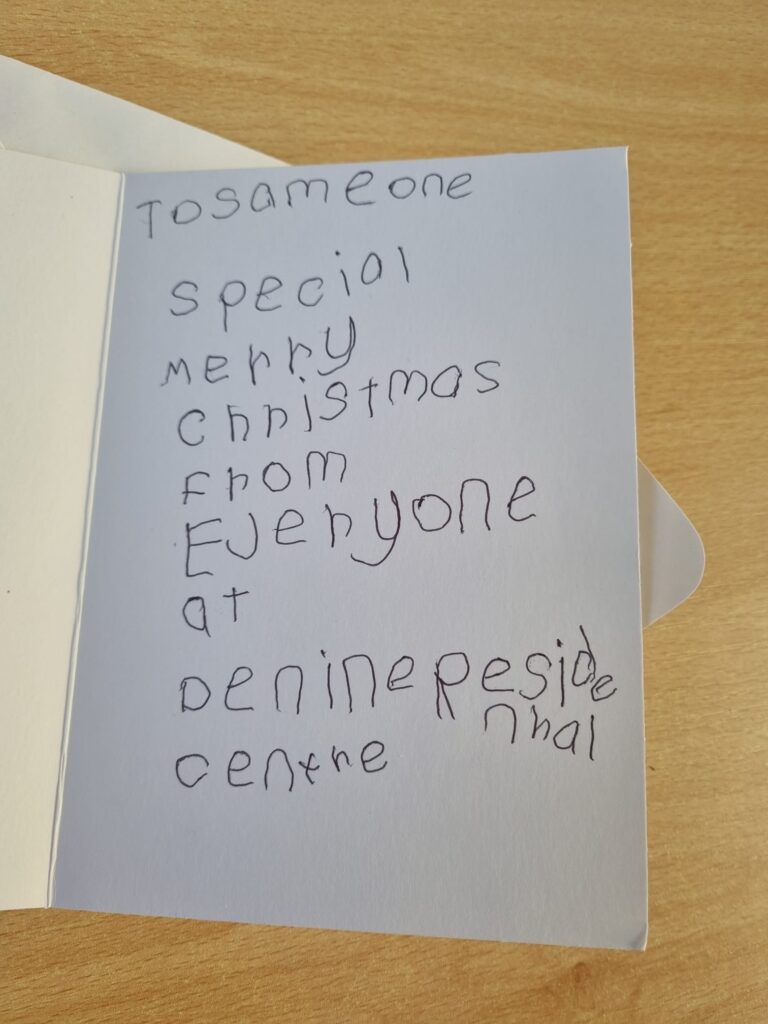 Tosameone
special
merry
christmas
From
Everyone
at
Denine Reside
nhal
centre